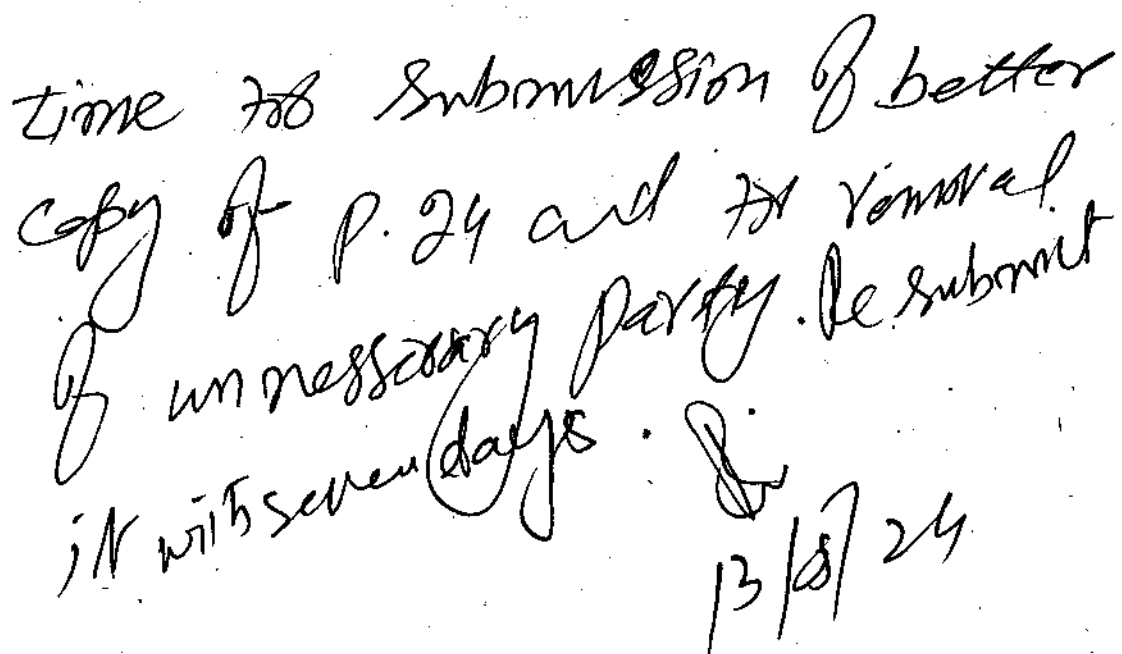 time for submission of better
copy of P. 24 and for removal
of unnessarary party. Resubmit
it with seven days.
13/8/24